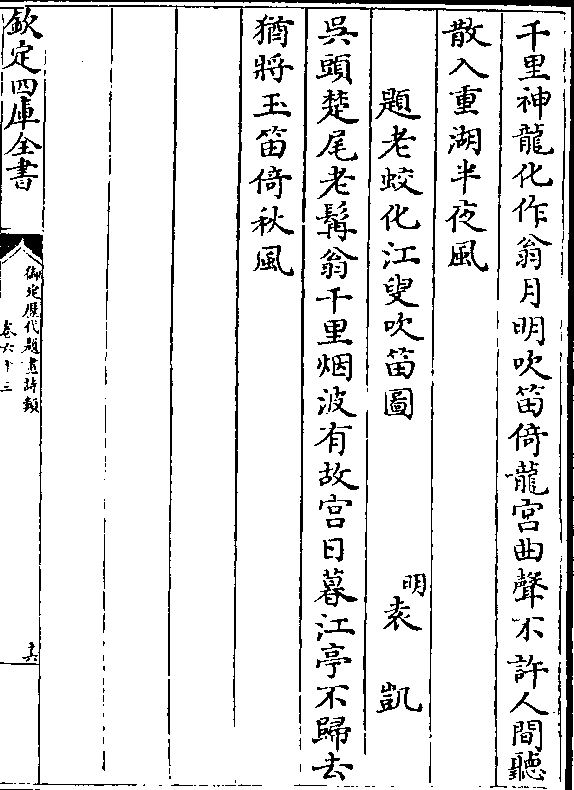 千里神龍化作翁月明吹笛倚龍宮曲聲不許人間聽
散入重湖半夜風
題老蛟化江叟吹笛圖
明袁凱
吳頭楚尾老髯翁千里烟波有故宮日暮江亭不歸去
猶將玉笛倚秋風
欽定四庫全書
御定歷代題畫詩類
卷六十三
十六